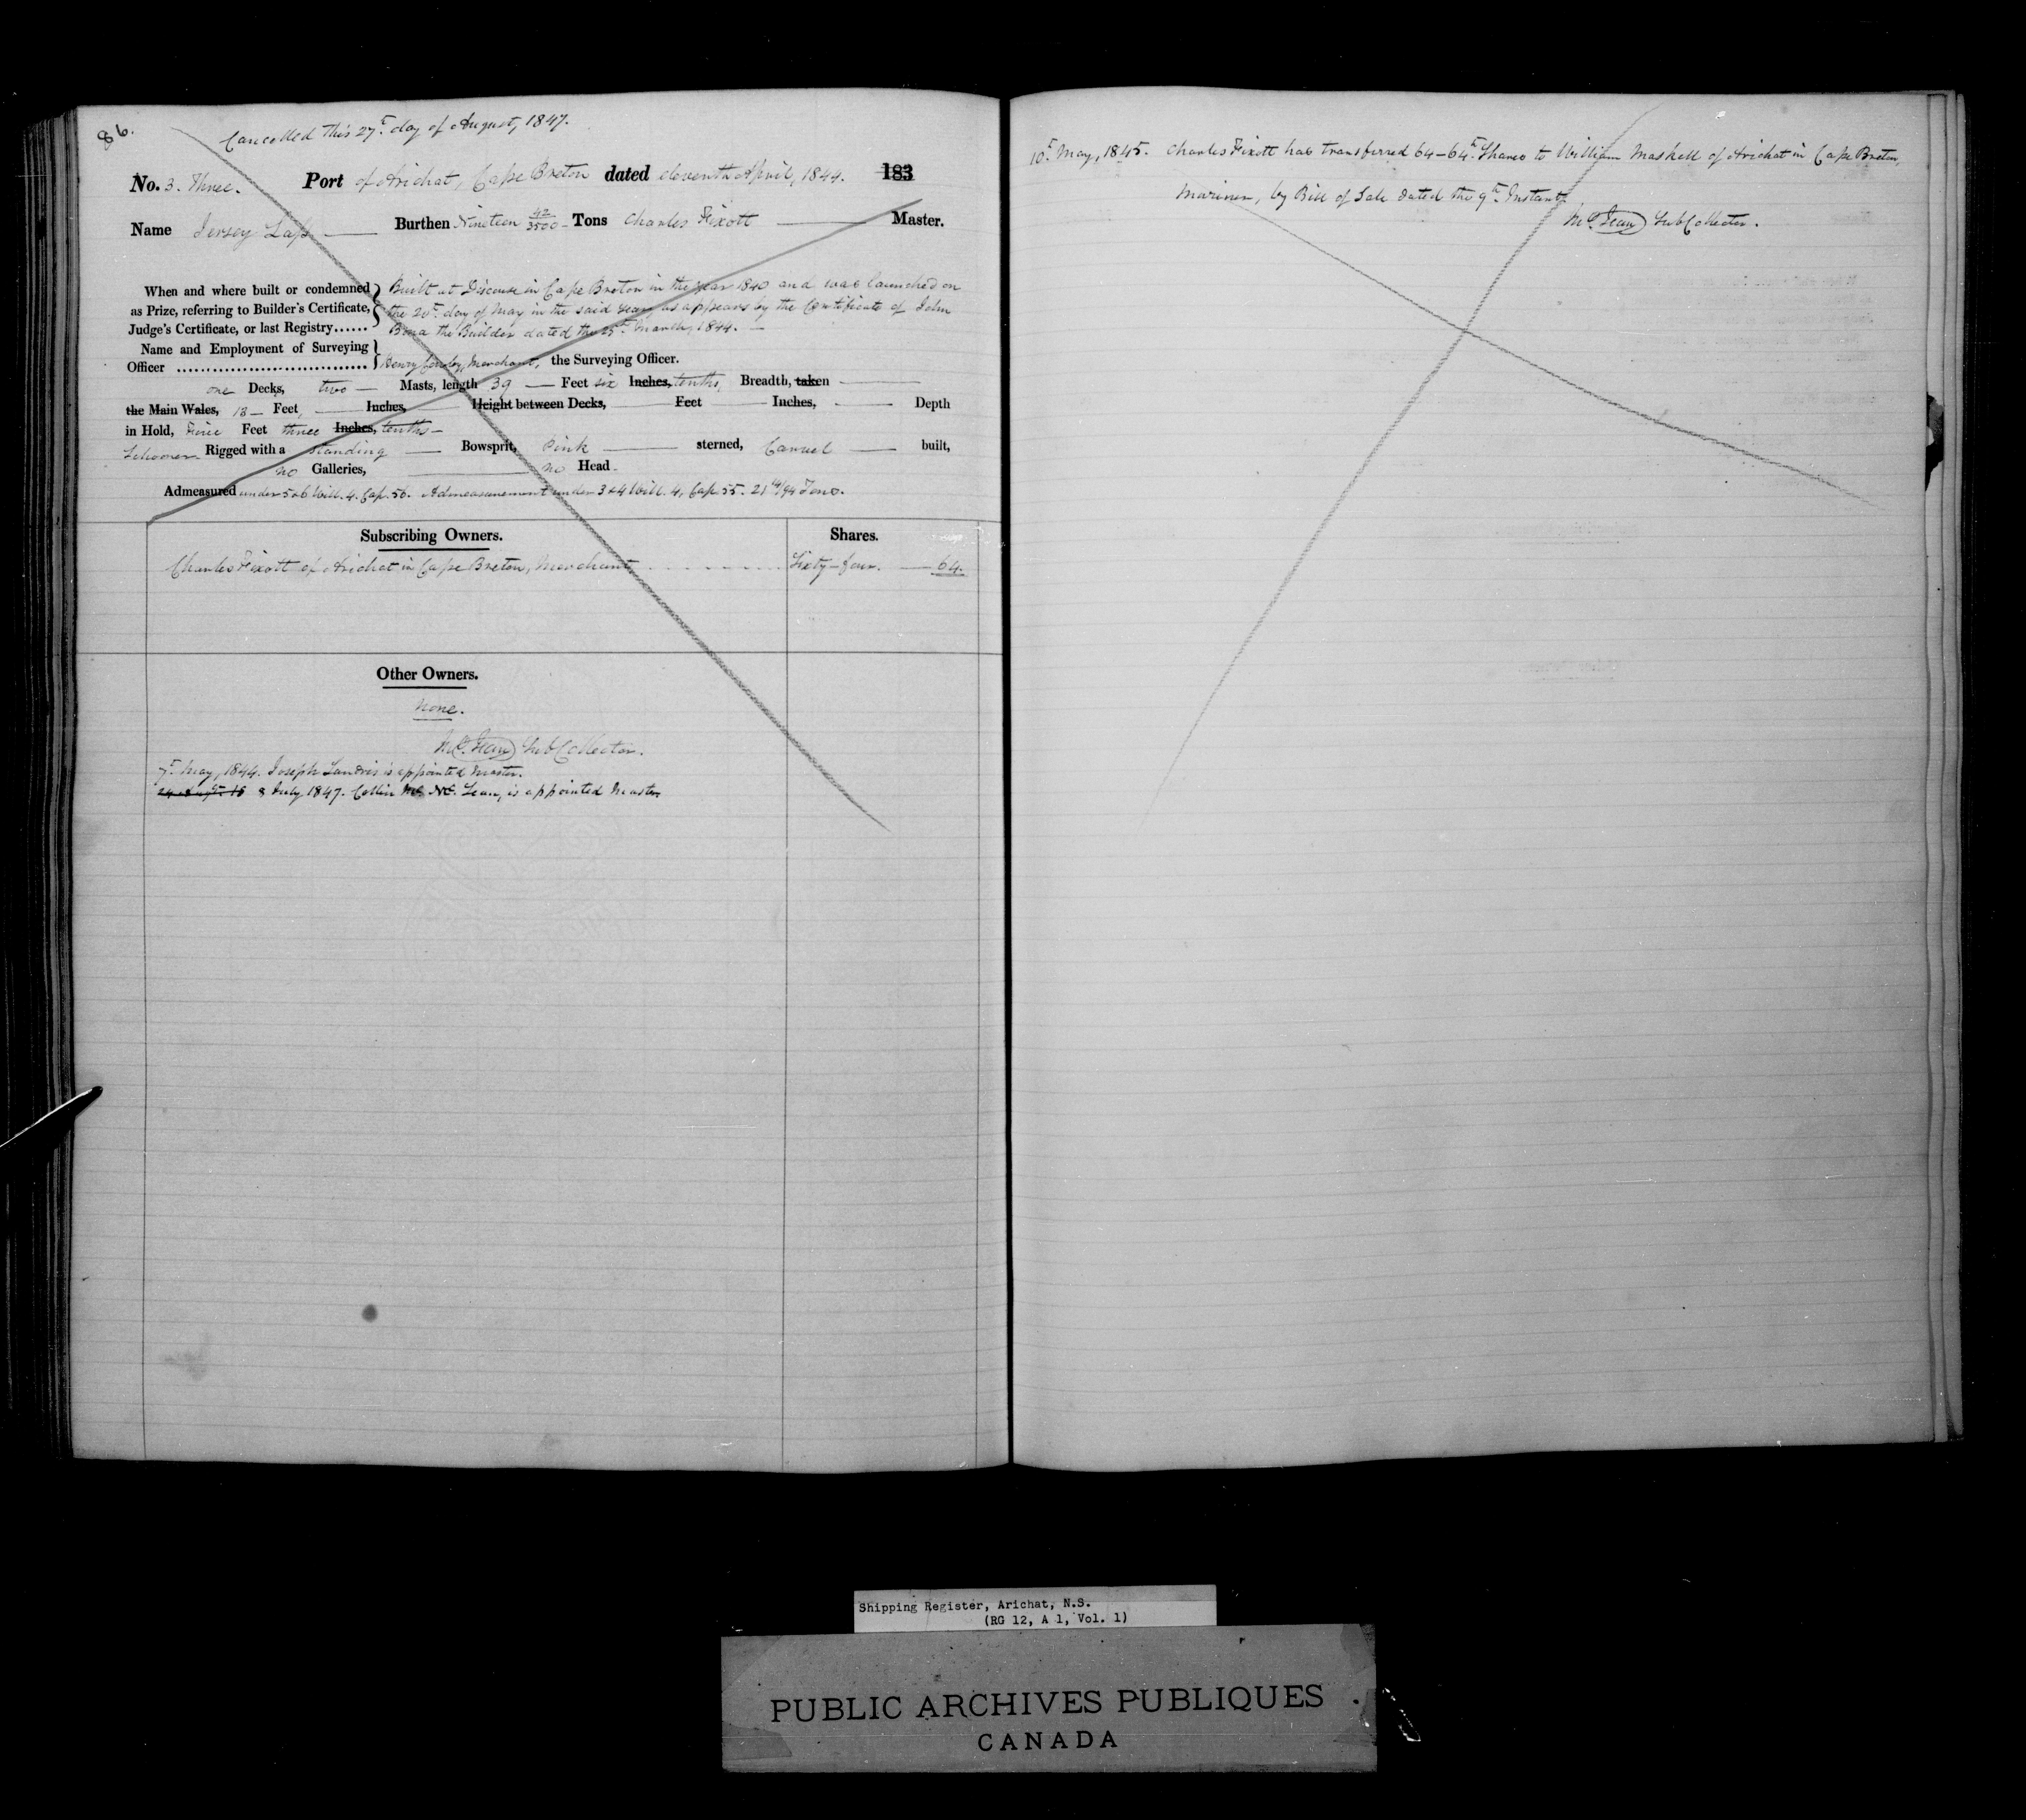 86.
Cancelled this 27th day of August, 1847.
No. 3. Three. Port of Arichat, Cape Breton dated eleventh April, 1844. 183
Name Jersey Lass Burthen Nineteen 42/3500 Tons Charles Fixott Master.
When and where built or condemned as Prize, referring to Builder's Certificate, Judge's Certificate, or last Registry......
Built at Discouse in Cape Breton in the year 1840 and was launched on
the 20th day of May in the said year, as appears by the Certificate of John
the Builder dated the 25th March, 1844.
Name and Employment of Surveying Officer ..............................
Henry Merchant, the Surveying Officer.
one Decks, two Masts, length 39 Feet six Inches, tenths, Breadth, taken
the Main Wales, 13 Feet, Inches, Height between Decks, Feet Inches, Depth
in Hold, Five Feet three Inches, tenths
Schooner Rigged with a standing Bowsprit, Pink sterned, Carvel built,
no Galleries, no Head
Admeasured under 5 & 6 Will. 4. Cap. 56. Admeasurement under 3 & 4 Will. 4, Cap. 55. 21 14/94 Tons.
Subscribing Owners. Shares.
Charles Fixott of Arichat in Cape Breton, Merchant, Sixty-four. 64.
Other Owners.
None.
Sub Collector.
7th May, 1844. Joseph Landris is appointed Master.
8 July 1847. Collin Mc Lean, is appointed Master
10th May, 1845. Charles Fixott has transferred 64-64th Shares to William Maskell of Arichat in Cape Breton,
Mariner, by Bill of Sale dated the 9th Instant.
Sub Collector.
Shipping Register, Arichat, N.S.
(RG 12, A 1, Vol. 1)
PUBLIC ARCHIVES PUBLIQUES
CANADA